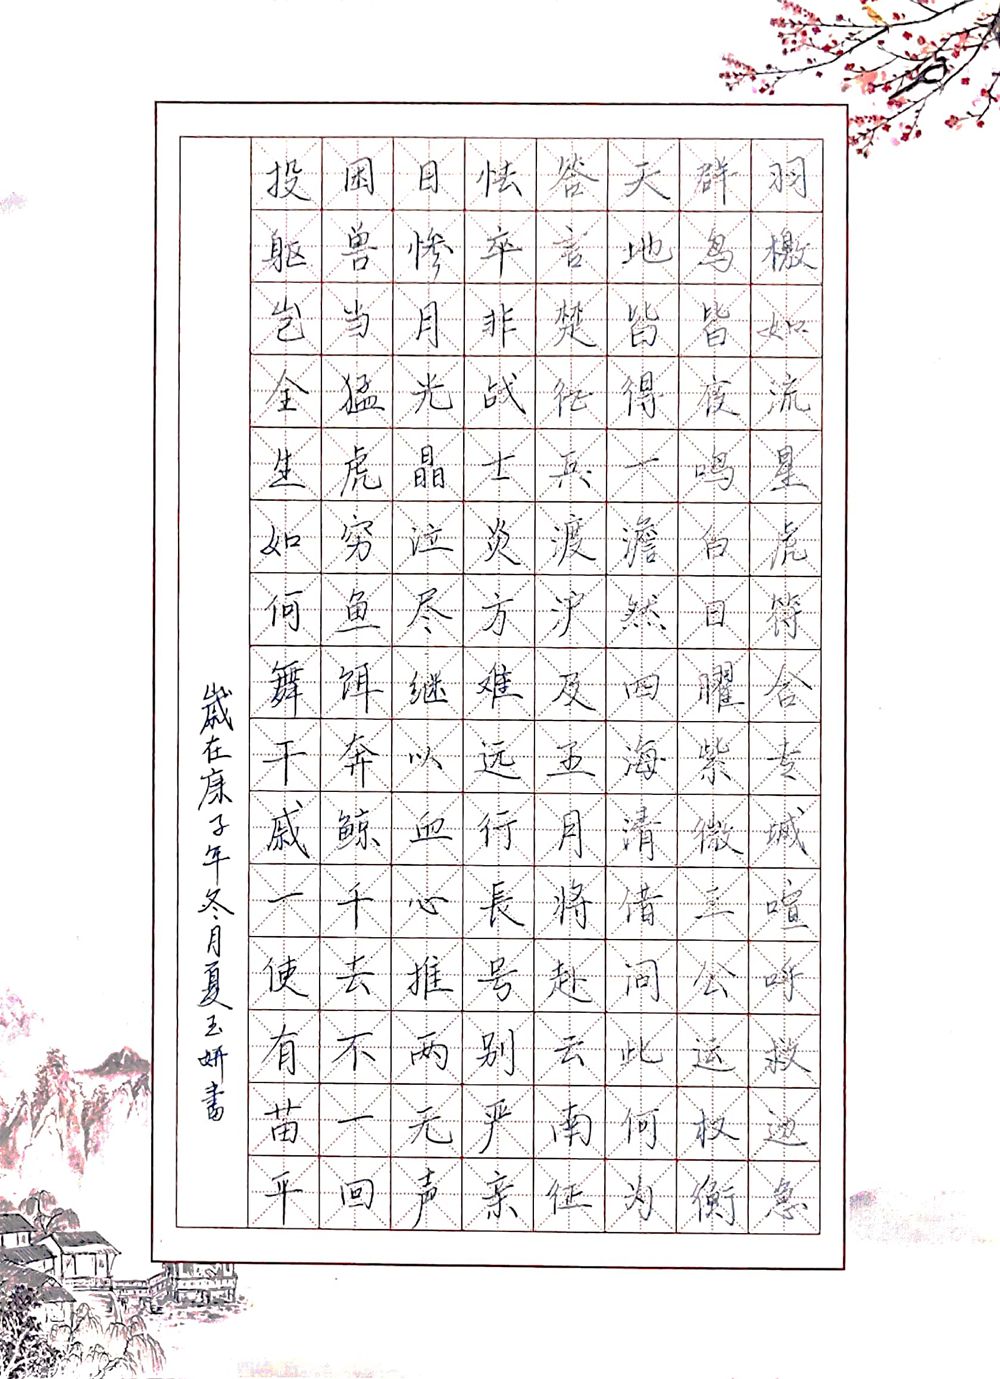 羽檄如流星虎符合专城喧呼救边急
群鸟皆夜鸣白日曜紫微三公运权衡
天地皆得一澹然四海清借问此何为
答言楚征兵渡泸及五月将赴云南征
怯卒非战士炎方难远行長号别严亲
日惨月光晶泣尽继以血心推两无声
困兽当猛虎穷鱼饵奔鲸千去不一回
投躯岂全生如何舞干戚一使有苗平
歲在庚子年冬月夏玉妍書